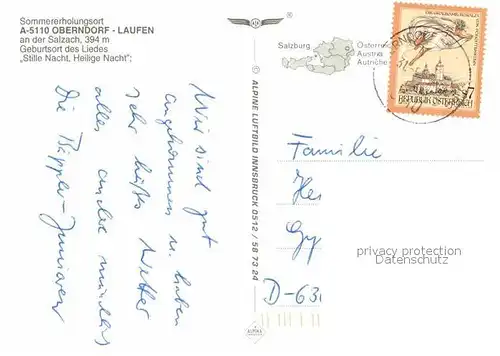 Sommererholungsort
A-5110 OBERNDORF - LAUFEN
an der Salzach, 394 m
Geburtsort des Liedes
„Stille Nacht, Heilige Nacht";
Wir sind gut
angekommen u. haben
sehr heißes Wetter
alles andere mündlich
Die
ALPINE LUFTBILD INNSBRUCK 0512 / 58 73 24
ALPINA
Salzburg
Österreich
Austria
Autriche
S 7
REPUBLIK ÖSTERREICH
Familie
He
Gy
D-631
privacy protection
Datenschutz